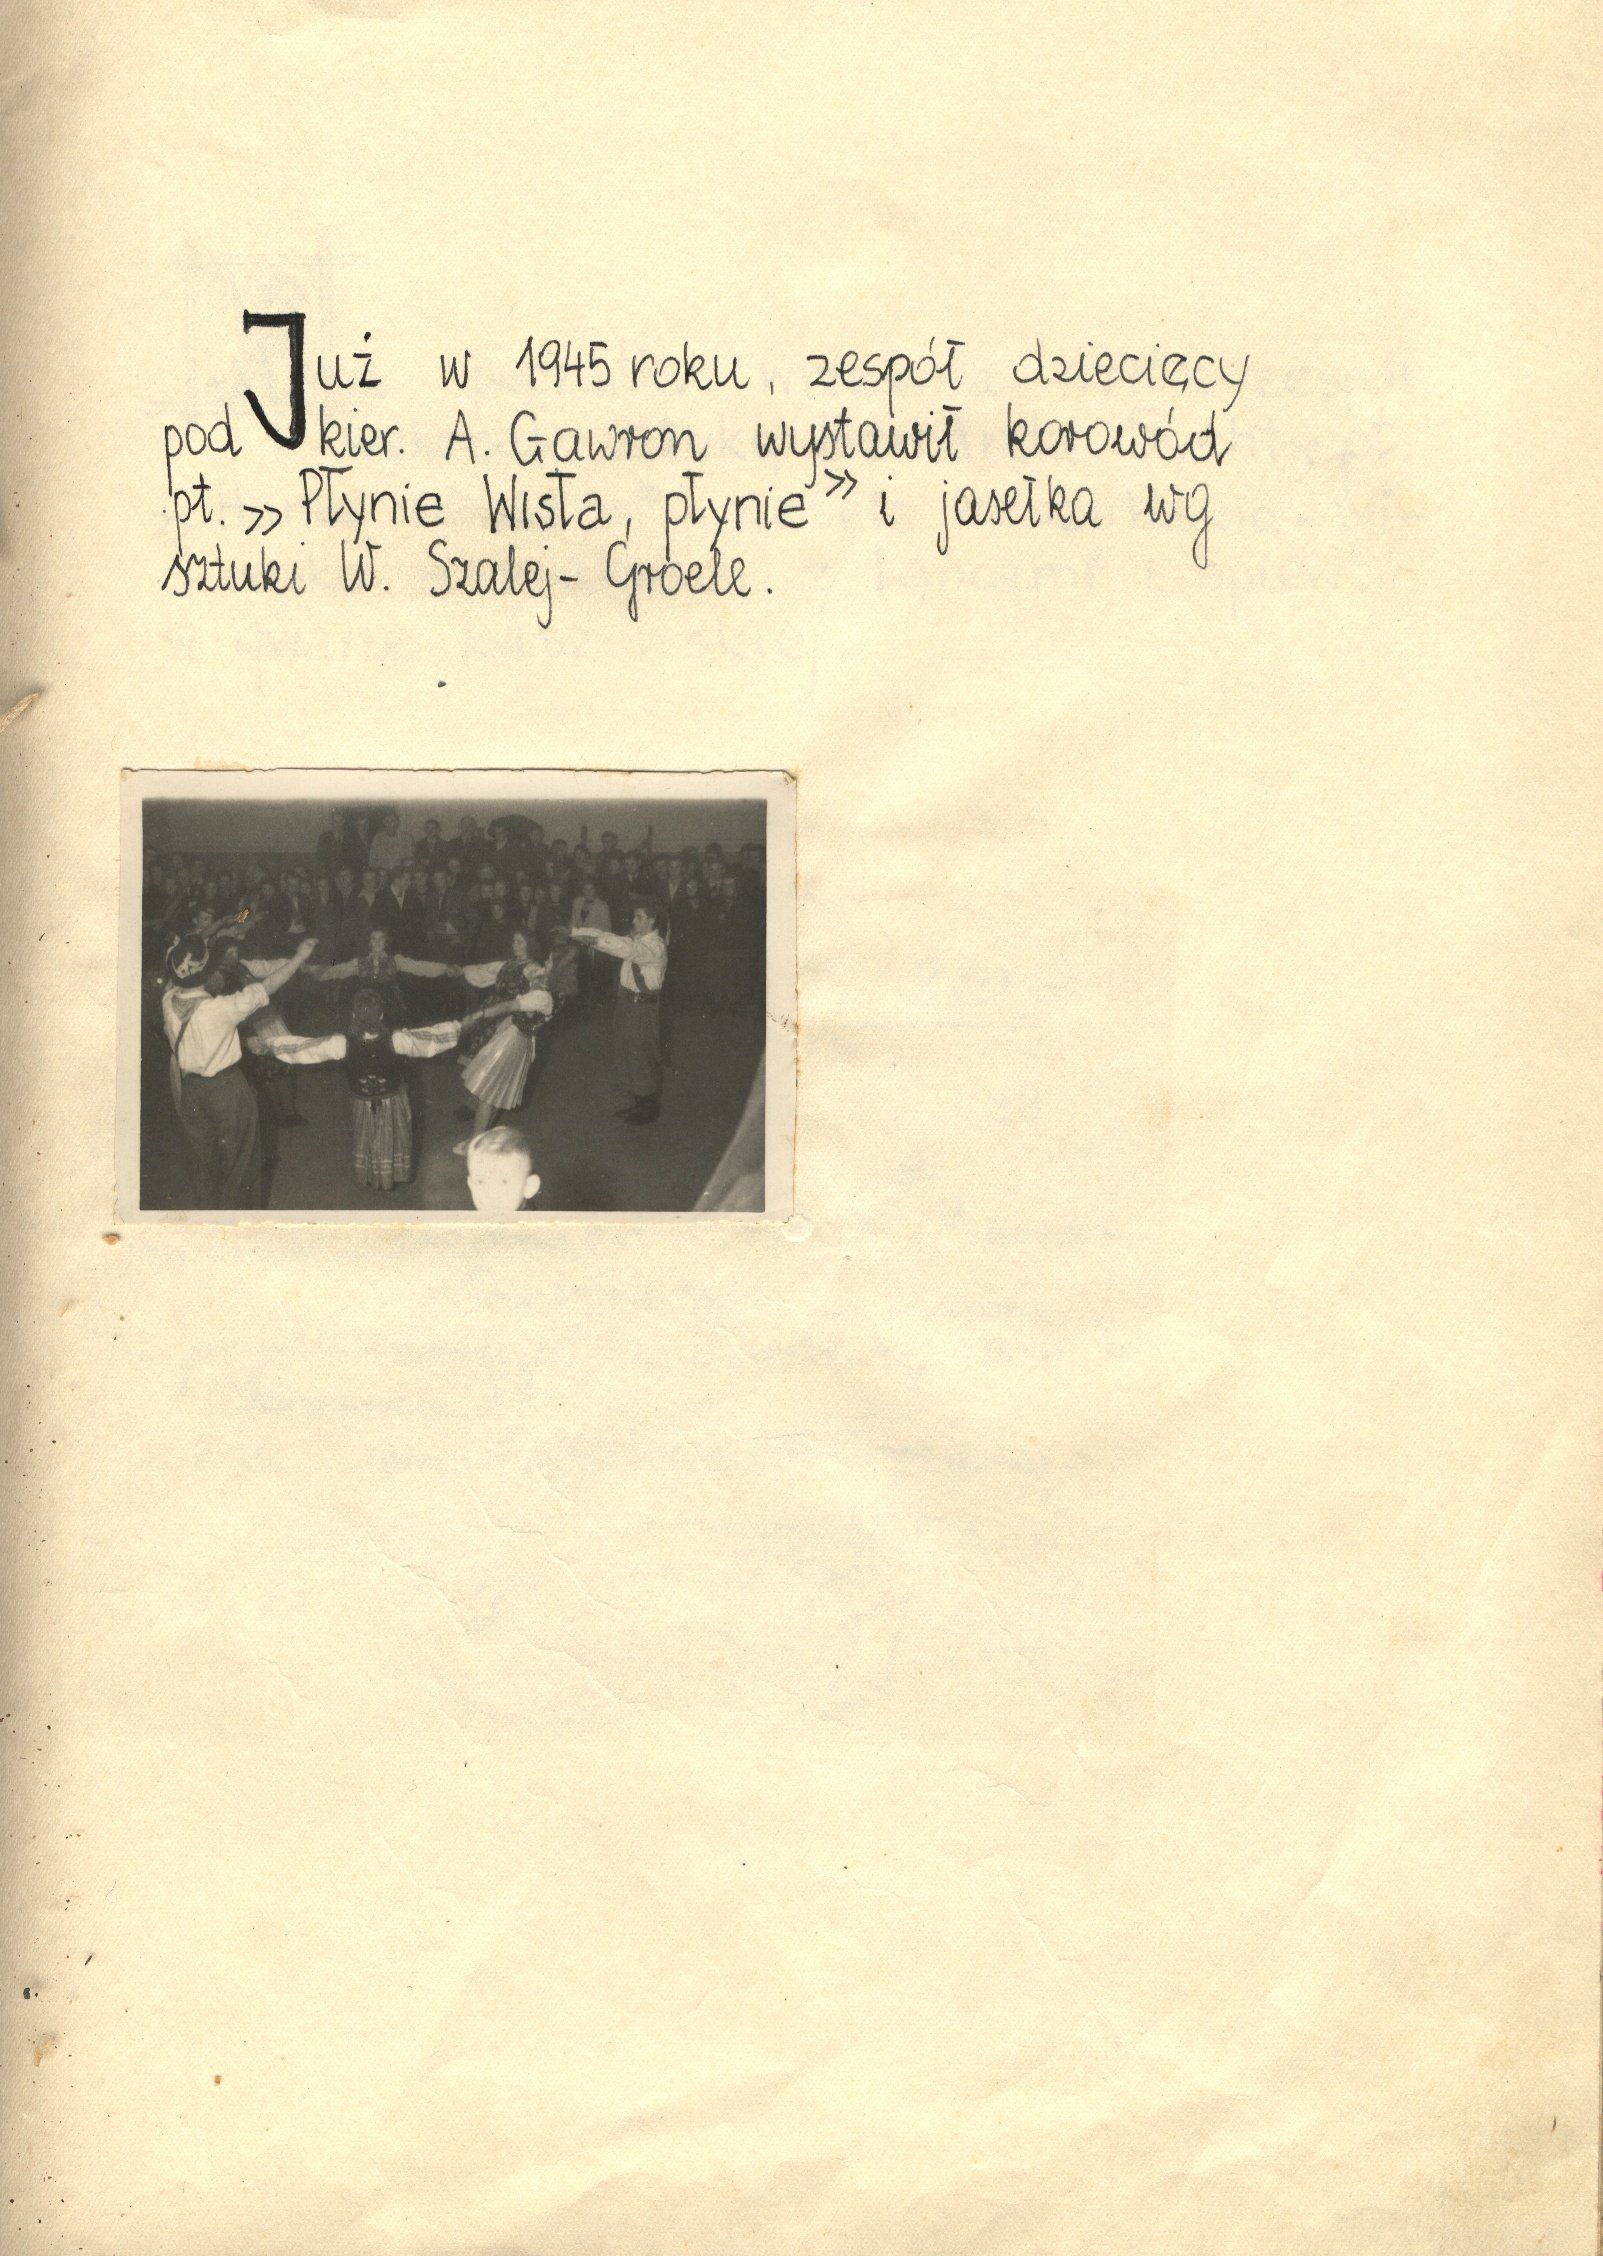 Już w 1945 roku, zespół dziecięcy
pod kier. A. Gawron wystawił korowód
pt. » Płynie Wisła, płynie » i jasełka wg
sztuki W. Szalej-Groele.